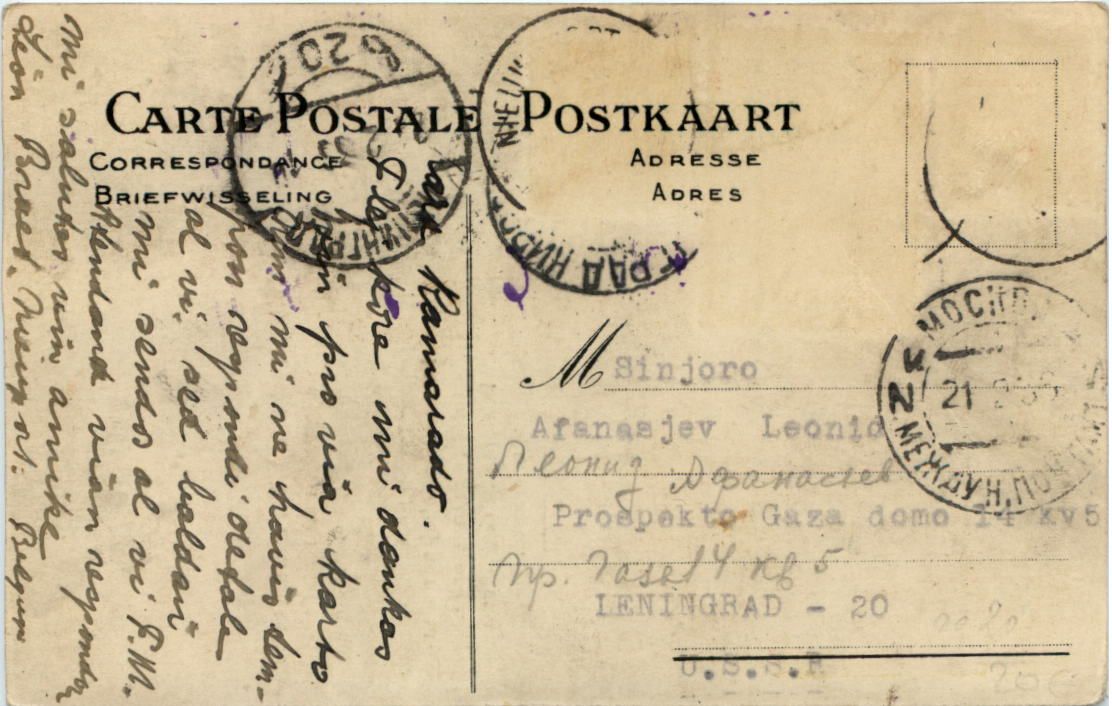 CARTE POSTALE POSTKAART
CORRESPONDANCE
BRIEFWISSELING
ADRESSE
ADRES
Kara Kamarado.
Tle kore mi dankas
vin pro via karto
mi ne havis tem-
pon respondi detale
al vi. sed baldaŭ
mi sendos al vi P.M.
Atendand vian respondon
mi salutas vin amike
Léon Braet. Nieuport. Belgun
M Sinjoro
Afanasjev Leonid
Леонид Афанасьев
Prospekto Gaza domo 14 kv5
Пр. Газа 14 кв 5
LENINGRAD - 20
U.S.S.R
20
ЛЕНИНГРАД
МОСКВА
21
МЕЖДУН
20€